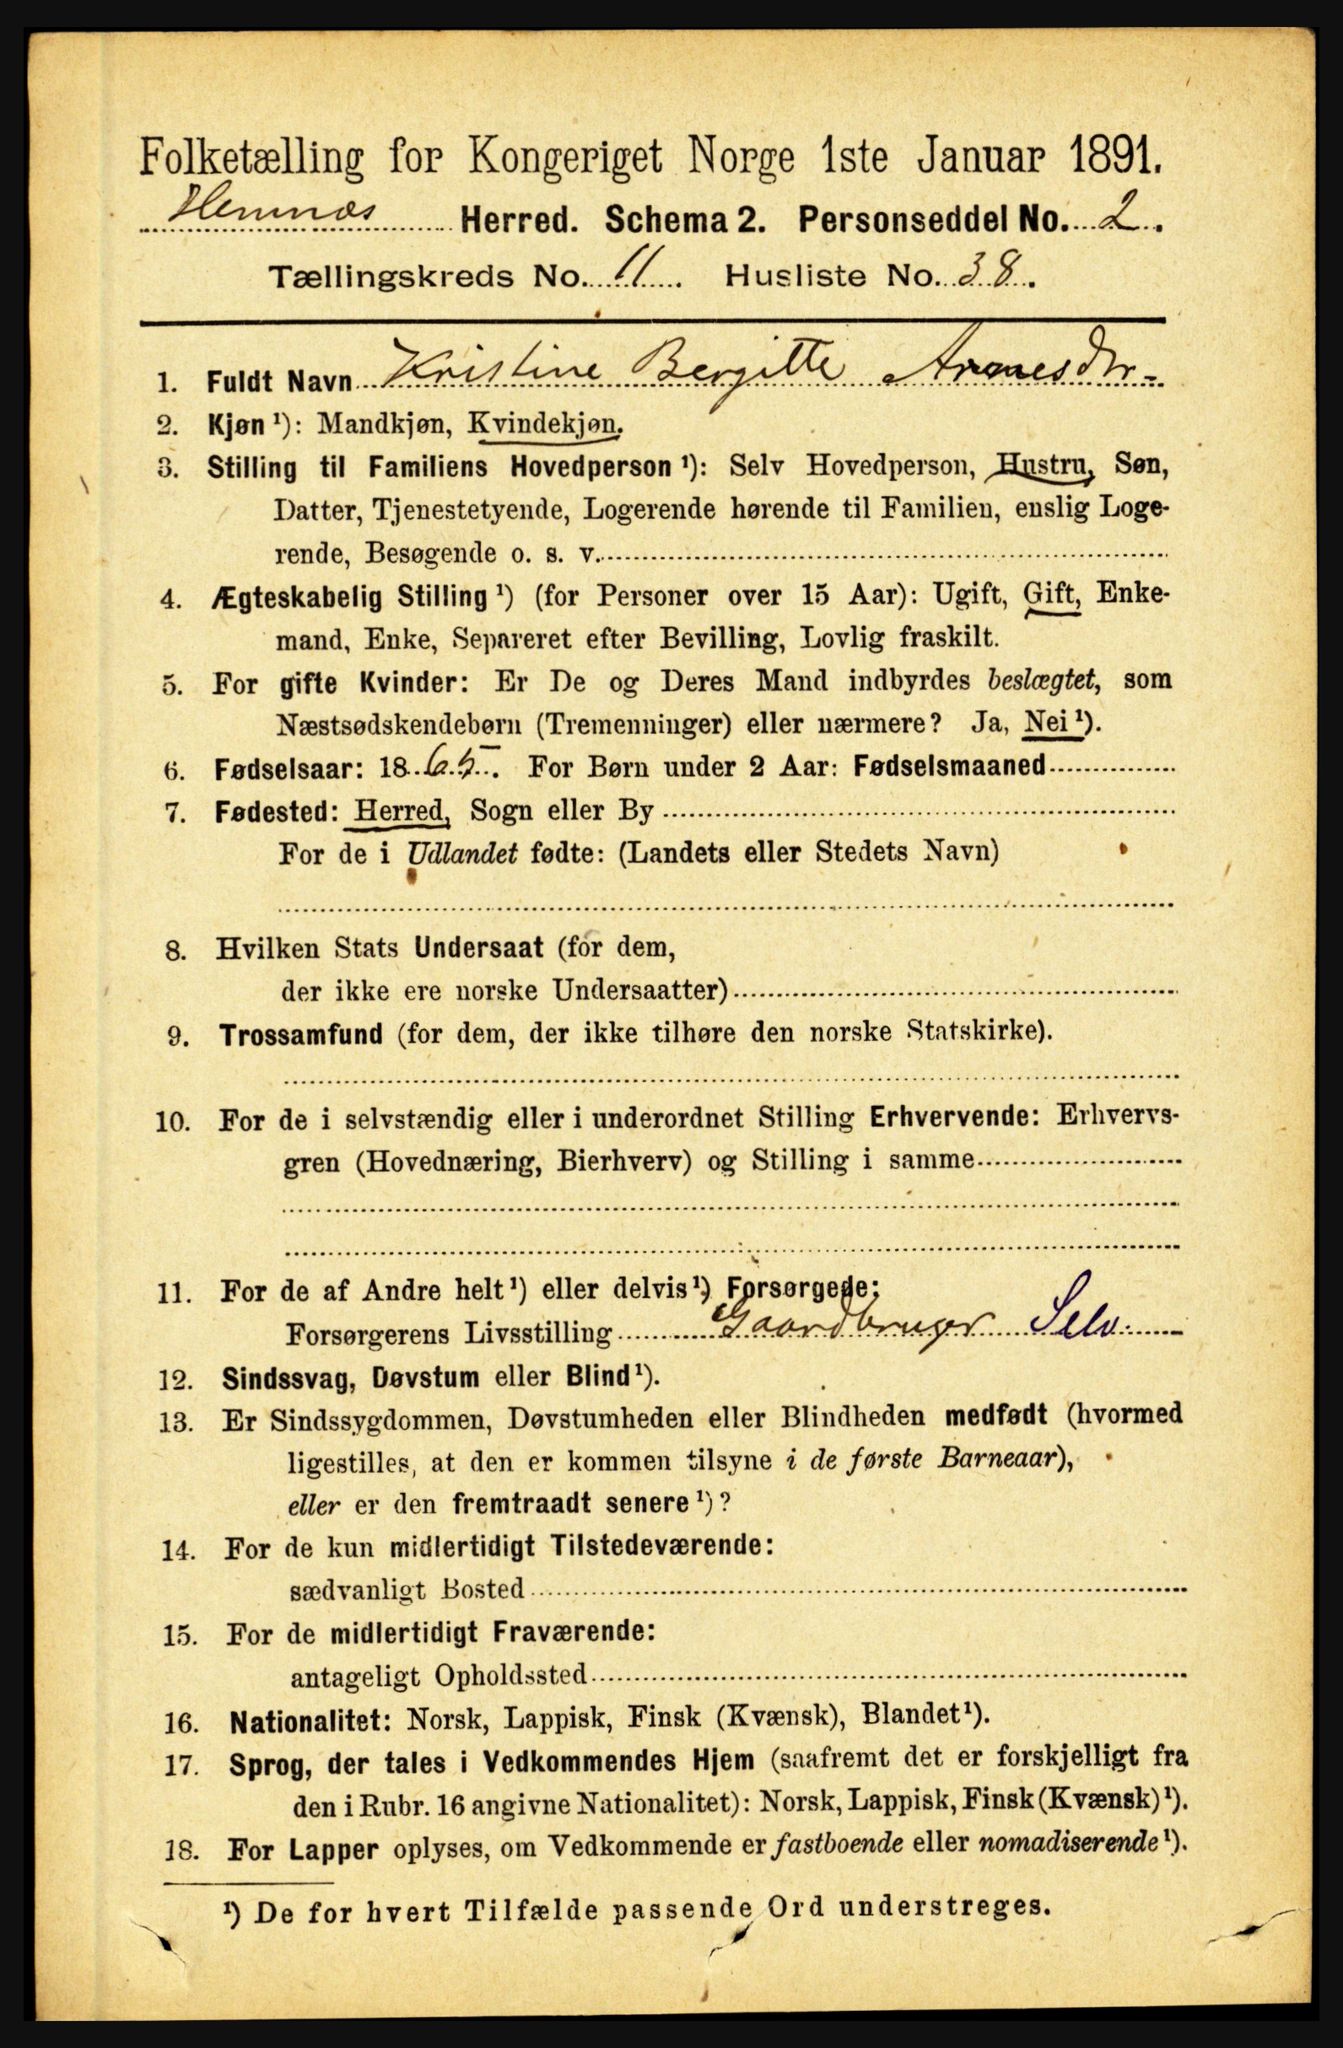 Folketælling for Kongeriget Norge 1ste Januar 1891.
Hemnæs Herred. Schema 2. Personseddel No. 2.
Tællingskreds No. 11. Husliste No. 38.
1. Fuldt Navn Kristine Bergitte Arnesdtr-
2. Kjøn ¹): Mandkjøn, Kvindekjøn.
3. Stilling til Familiens Hovedperson ¹): Selv Hovedperson, Hustru, Søn,
Datter, Tjenestetyende, Logerende hørende til Familien, enslig Loge-
rende, Besøgende o. s. v.
4. Ægteskabelig Stilling ¹) (for Personer over 15 Aar): Ugift, Gift, Enke-
mand, Enke, Separeret efter Bevilling, Lovlig fraskilt.
5. For gifte Kvinder: Er De og Deres Mand indbyrdes beslægtet, som
Næstsødskendebørn (Tremenninger) eller nærmere? Ja, Nei ¹).
6. Fødselsaar: 1865. For Børn under 2 Aar: Fødselsmaaned
7. Fødested: Herred, Sogn eller By
For de i Udlandet fødte: (Landets eller Stedets Navn)
8. Hvilken Stats Undersaat (for dem,
der ikke ere norske Undersaatter)
9. Trossamfund (for dem, der ikke tilhøre den norske Statskirke).
10. For de i selvstændig eller i underordnet Stilling Erhvervende: Erhvervs-
gren (Hovednæring, Bierhverv) og Stilling i samme
11. For de af Andre helt ¹) eller delvis ¹) Forsørgede:
Forsørgerens Livsstilling Gaardbruger Selv.
12. Sindssvag, Døvstum eller Blind ¹).
13. Er Sindssygdommen, Døvstumheden eller Blindheden medfødt (hvormed
ligestilles, at den er kommen tilsyne i de første Barneaar),
eller er den fremtraadt senere ¹)?
14. For de kun midlertidigt Tilstedeværende:
sædvanligt Bosted
15. For de midlertidigt Fraværende:
antageligt Opholdssted
16. Nationalitet: Norsk, Lappisk, Finsk (Kvænsk), Blandet ¹).
17. Sprog, der tales i Vedkommendes Hjem (saafremt det er forskjelligt fra
den i Rubr. 16 angivne Nationalitet): Norsk, Lappisk, Finsk (Kvænsk) ¹).
18. For Lapper oplyses, om Vedkommende er fastboende eller nomadiserende ¹).
¹) De for hvert Tilfælde passende Ord understreges.